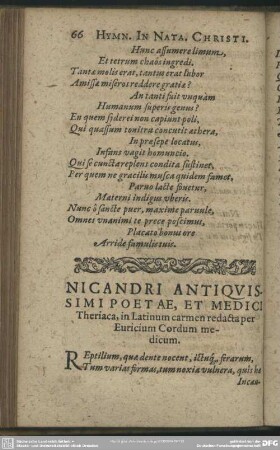 66 HYMN. IN NATA. CHRISTI.
Hunc assumere limum,
Et tetrum chaos ingredi.
Tantæ molis erat, tantus erat labor
Amissæ miseros reddere gratiæ?
An tanti fuit vnquàm
Humanum superis genus?
En quem siderei non capiunt poli,
Qui quassum tonitru concutit æthera,
In præsepe locatus,
Infans vagit homuncio.
Qui se cuncta replens condita sustinet,
Per quem ne gracilis musca quidem famet,
Paruo lacte fouetur,
Materni indigus vberis.
Nunc ò sancte puer, maxime paruule,
Omnes vnanimi te prece poscimus,
Placato bonus ore
Arride famulis tuis.
NICANDRI ANTIQVIS-
SIMI POETAE, ET MEDICI
Theriaca, in Latinum carmen redacta per
Euricium Cordum me-
dicum.
REptilium, quæ dente nocent, ictuq́, ferarum,
Tum varias formas, tum noxia vulnera, quis
Incau-